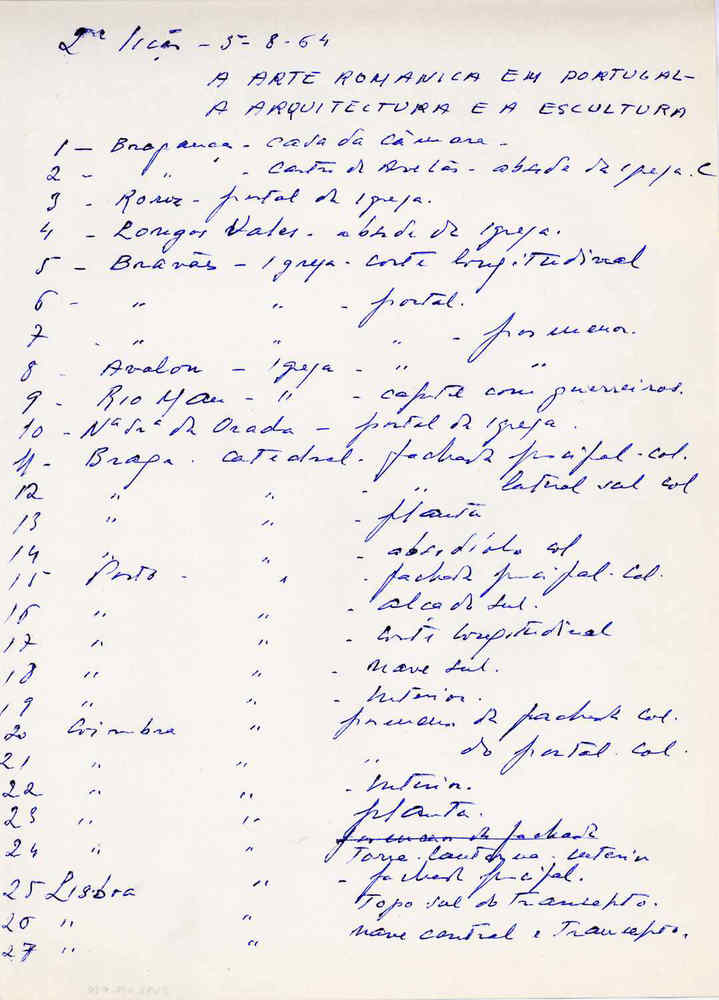 2ª lição - 5-8-64
A ARTE ROMANICA EM PORTUGAL -
A ARQUITECTURA E A ESCULTURA
1 - Bragança - casa da câmara -
2 - " " - Castro de Avelãs - abside da igreja. C
3 - Roriz - portal da igreja.
4 - Longos Vales - abside da igreja.
5 - Bravães - Igreja - corte longitudinal
6 - " " - portal.
7 - " " " - pormenor.
8 - Avalon - Igreja - " "
9 - Rio Mau - " - capitel com guerreiros.
10 - Nª Srª da Orada - portal da igreja.
11 - Braga - catedral - fachada principal - col.
12 " " - " lateral sul col
13 " " - planta
14 " " - absidíolo col
15 - Porto - " - fachada principal - col.
16 " " - alçado sul.
17 " " - corte longitudinal
18 " " - nave sul.
19 " " - Interior.
20 Coimbra " pormenor da fachada col.
21 " " " do portal - col.
22 " " - Interior.
23 " " planta.
pormenor da fachada
24 " " Torre-lanterna - interior
25 Lisboa " - fachada pcipal.
26 " " Topo sul do Transepto.
27 " " nave central e Transepto.